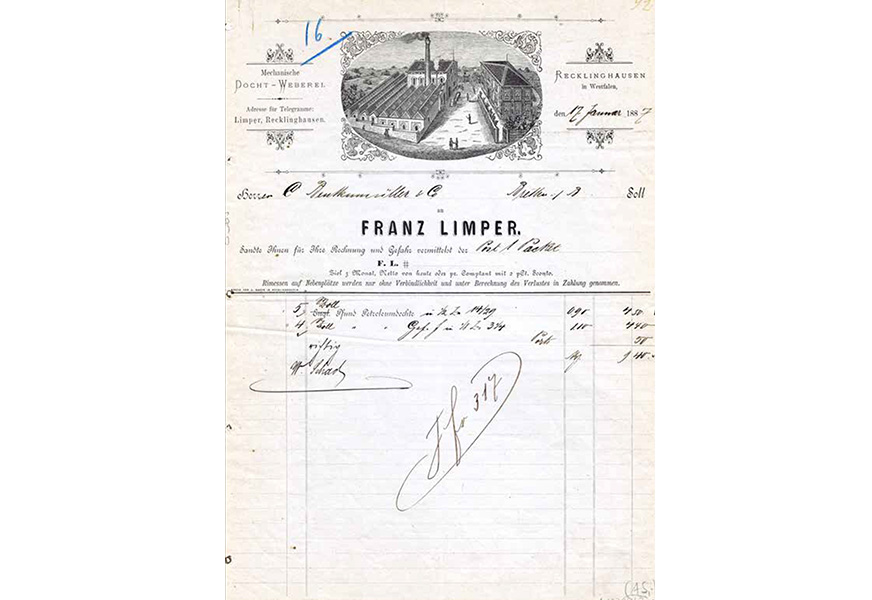 16.
92
Mechanische
Docht-Weberei.
Adresse für Telegramme:
Limper, Recklinghausen.
Recklinghausen
in Westfalen,
den 17 Januar 1887
Herren C & Co Soll
an
FRANZ LIMPER.
Sandte Ihnen für Ihre Rechnung und Gefahr vermittelst der Post 1 Packet
F. L. #
Ziel 3 Monat, Netto von heute oder pr. Comptant mit 2 pCt. Sconto.
Rimessen auf Nebenplätze werden nur ohne Verbindlichkeit und unter Berechnung des Verlustes in Zahlung genommen.
5 Zoll
Engl. Pfund Petroleumdochte 14/29 090 450
4 Zoll " " 110 440
Porto 50
richtig 9 40
317
(45.)